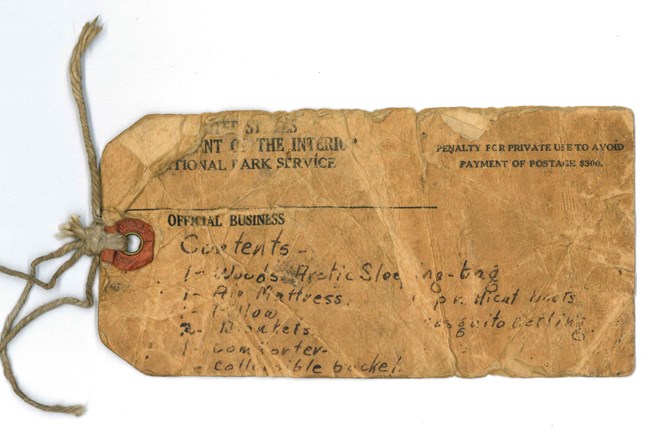 STATES
OF THE INTERIOR
NATIONAL PARK SERVICE
PENALTY FOR PRIVATE USE TO AVOID
PAYMENT OF POSTAGE $300.
OFFICIAL BUSINESS
Contents -
1- Woods Arctic Sleeping-bag
1- Air Mattress.
1- Pillow
2- Blankets
Mosquito netting
1- Comforter-
- Collapsible bucket.